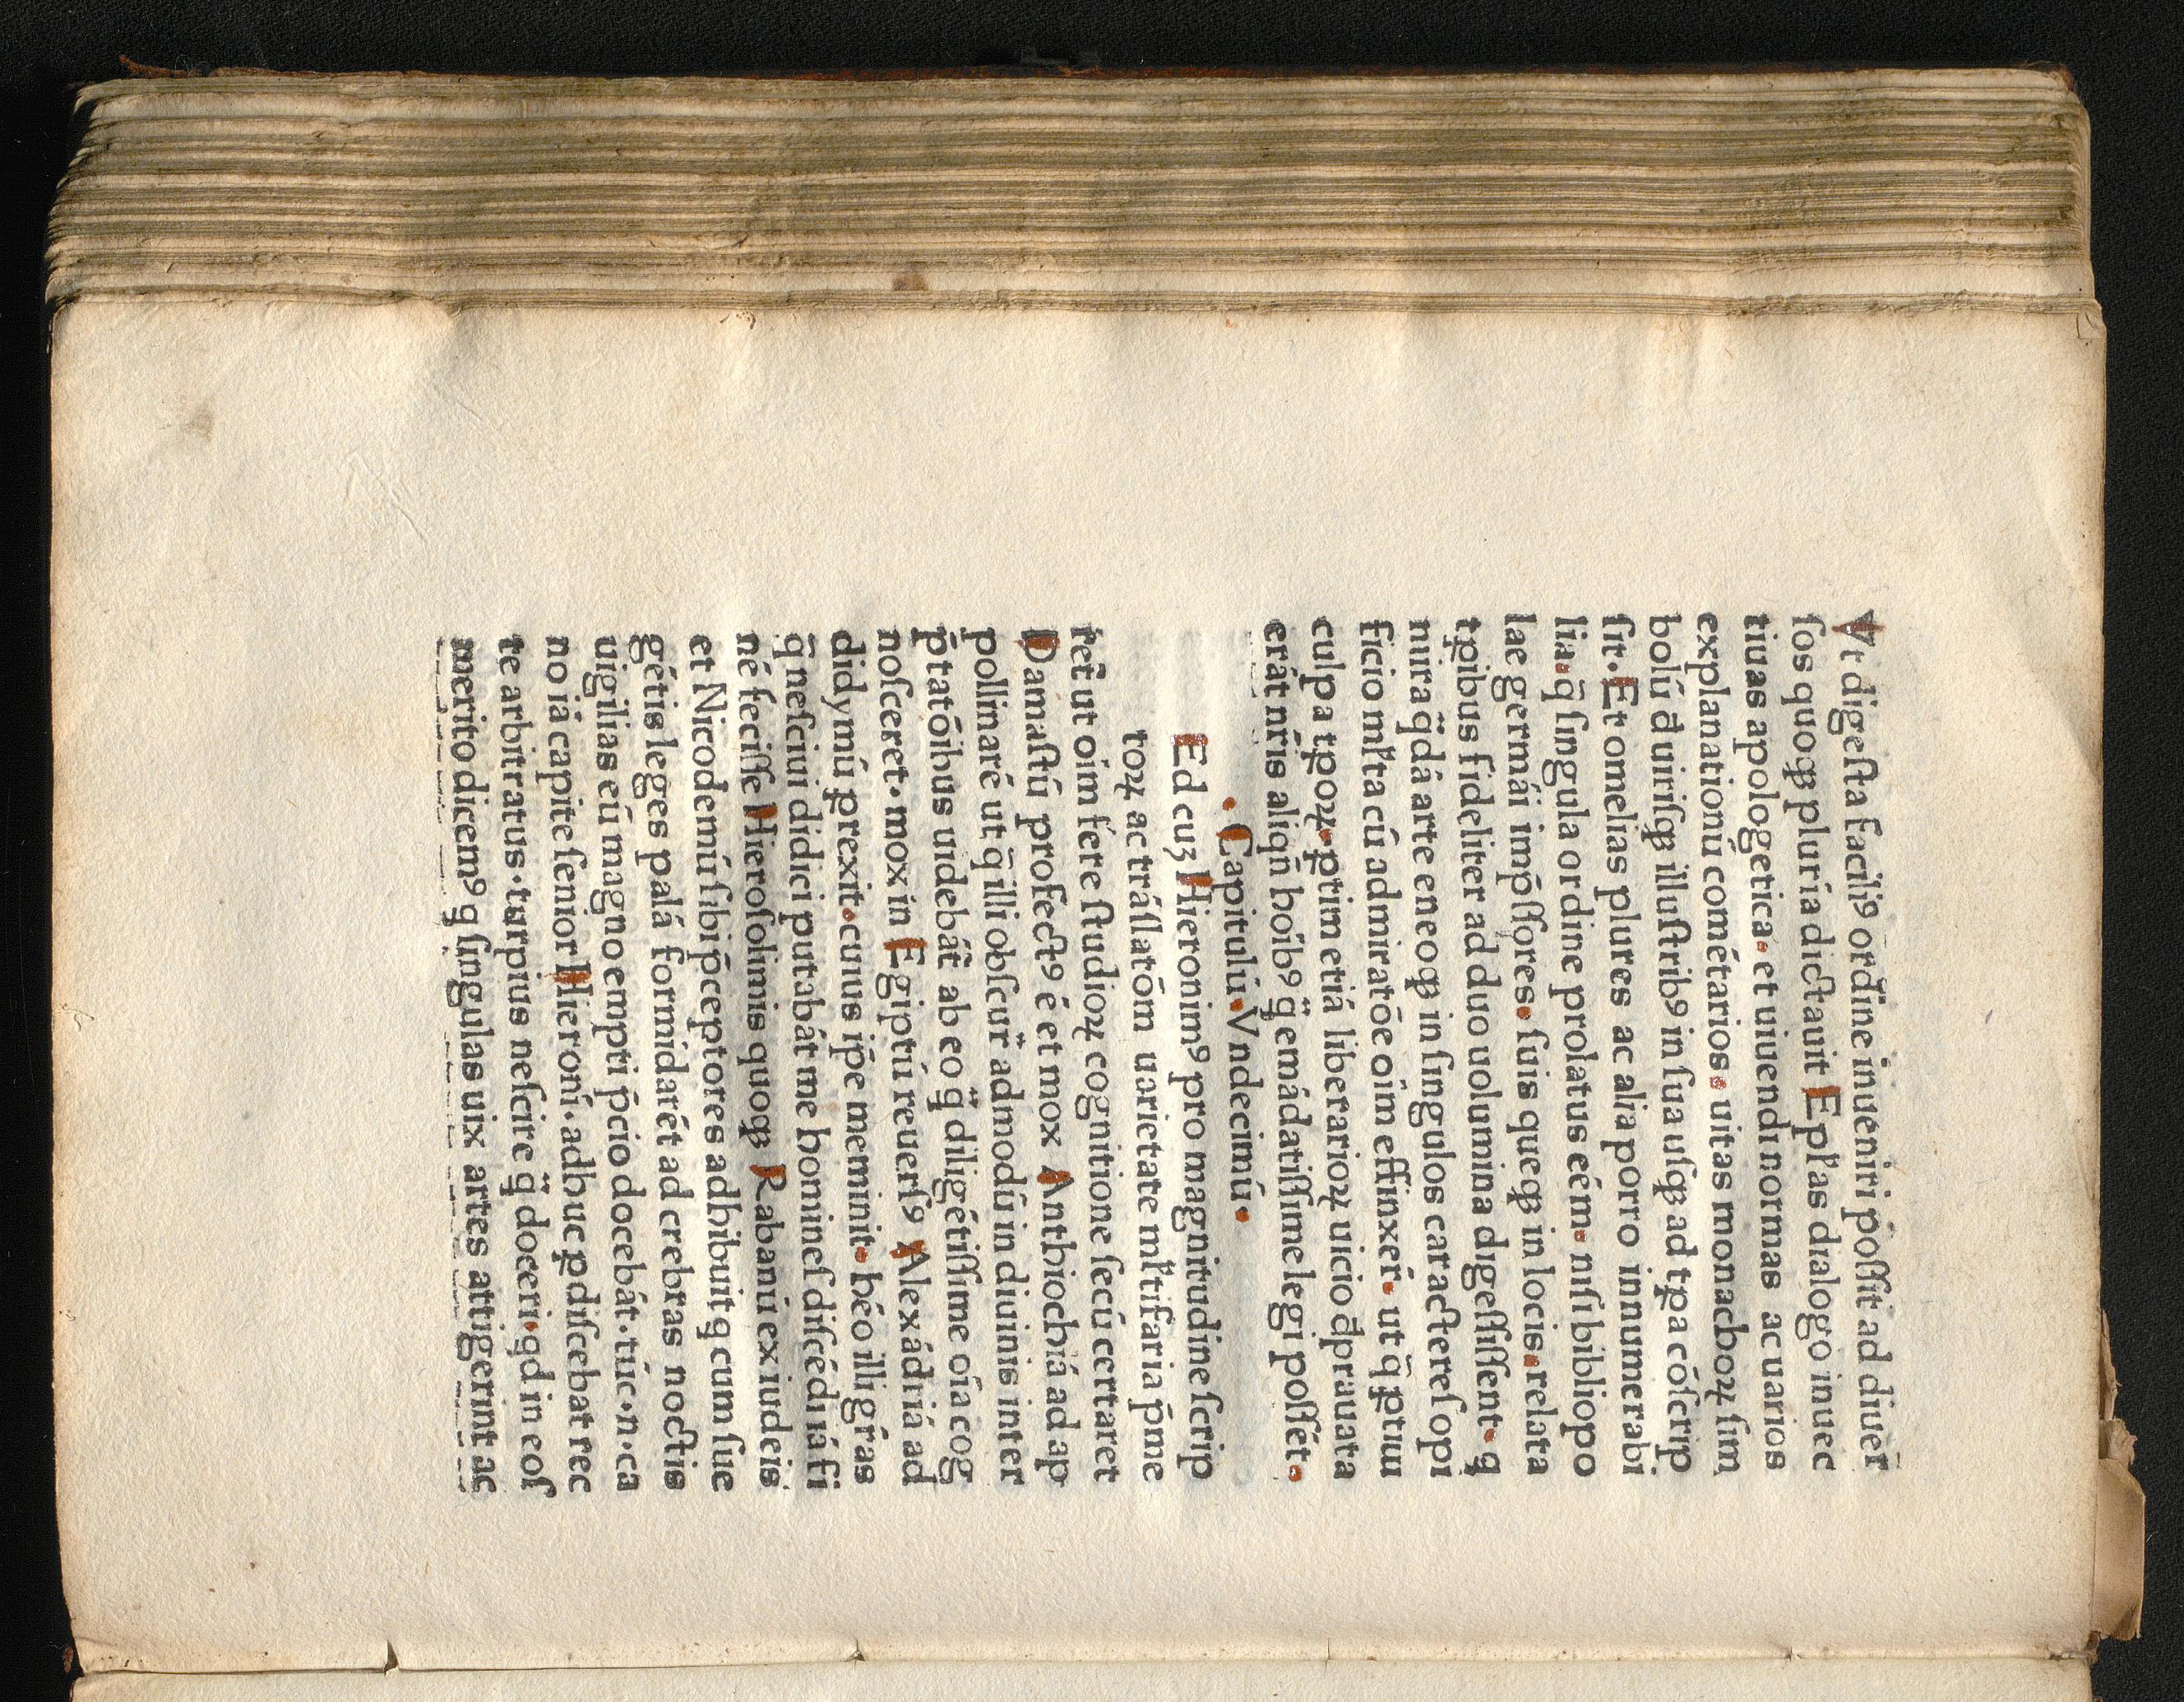 Vt digeſta facili⁹ ordine inueniri poſſit ad diuer̄
ſos quoqꝫ pluría dictauit Epl'as dialogo inuec
tiuas apologetica· et uiuendi normas ac uarios
explanationú comé́tarios· uitas monachoꝝ ſim
bolú đ uiriſqꝫ illuſtrib⁹ in ſua uſqꝫ ad tꝑa cóſcrip
ſit· Et omelias plures ac alia porro innumerabi
lia· q̄ ſingula ordine prolatus eém· niſi bibliopo
lae germái imp̄ſſores· ſuis queqꝫ in locis· relata
tꝑibus fideliter ad duo uolumina digeſſiſſent· q
mira q̈dá arte eneoqꝫ in ſingulos caractereſ opi
ficio ml'ta cú admiratōe oīm effinxér· ut q̄ ꝑtium
culpa tꝑoꝝ· ꝑtim etiá librarioꝝ uicio đprauata
erát nr̄is aliqn̄ hoīb⁹ q̈ emádatiſſime legi poſſét·
· Capitulú· Vndecimú·
Ed cuꝫ Hieronim⁹ pro magnitudine ſcrip
toꝝ ac tráſlatōm uarietate ml'tifaria p̄me
ret̄ ut oīm fere ſtudioꝝ cognitione ſecú certaret
Damaſtú profect⁹ é et mox Anthiochiá ad ap
pollinaré ut q̄ illi obſcur̄ admodú in diuinis inter
p̄tatōibus uidebat̄ ab eo q̈ diligétiſſime oīa cog
noſceret· mox in Egiptú reuerſ⁹ Alexádriá ad
didymú ꝑrexit· cuius ip̄e meminit· héo illi gr̄as
q̄ neſciui didici putabát me homineſ diſcédi iá fi
né feciſſe Hieroſolimis quoqꝫ Rabanú ex iudeis
et Nicodemú ſibi p̄ceptores adhibuit q cum ſue
gétis leges palá formidarét ad crebras noctis
uigilias eú magno empti p̄cio docebát· túc·n·ca
no iá capite ſenior Hieroní· adhuc ꝑdiſcebat rec
te arbitratus· turpius neſcire q̈ doceri· qd in eoſ
merito dicem⁹ q ſingulas uix artes attigerint ac